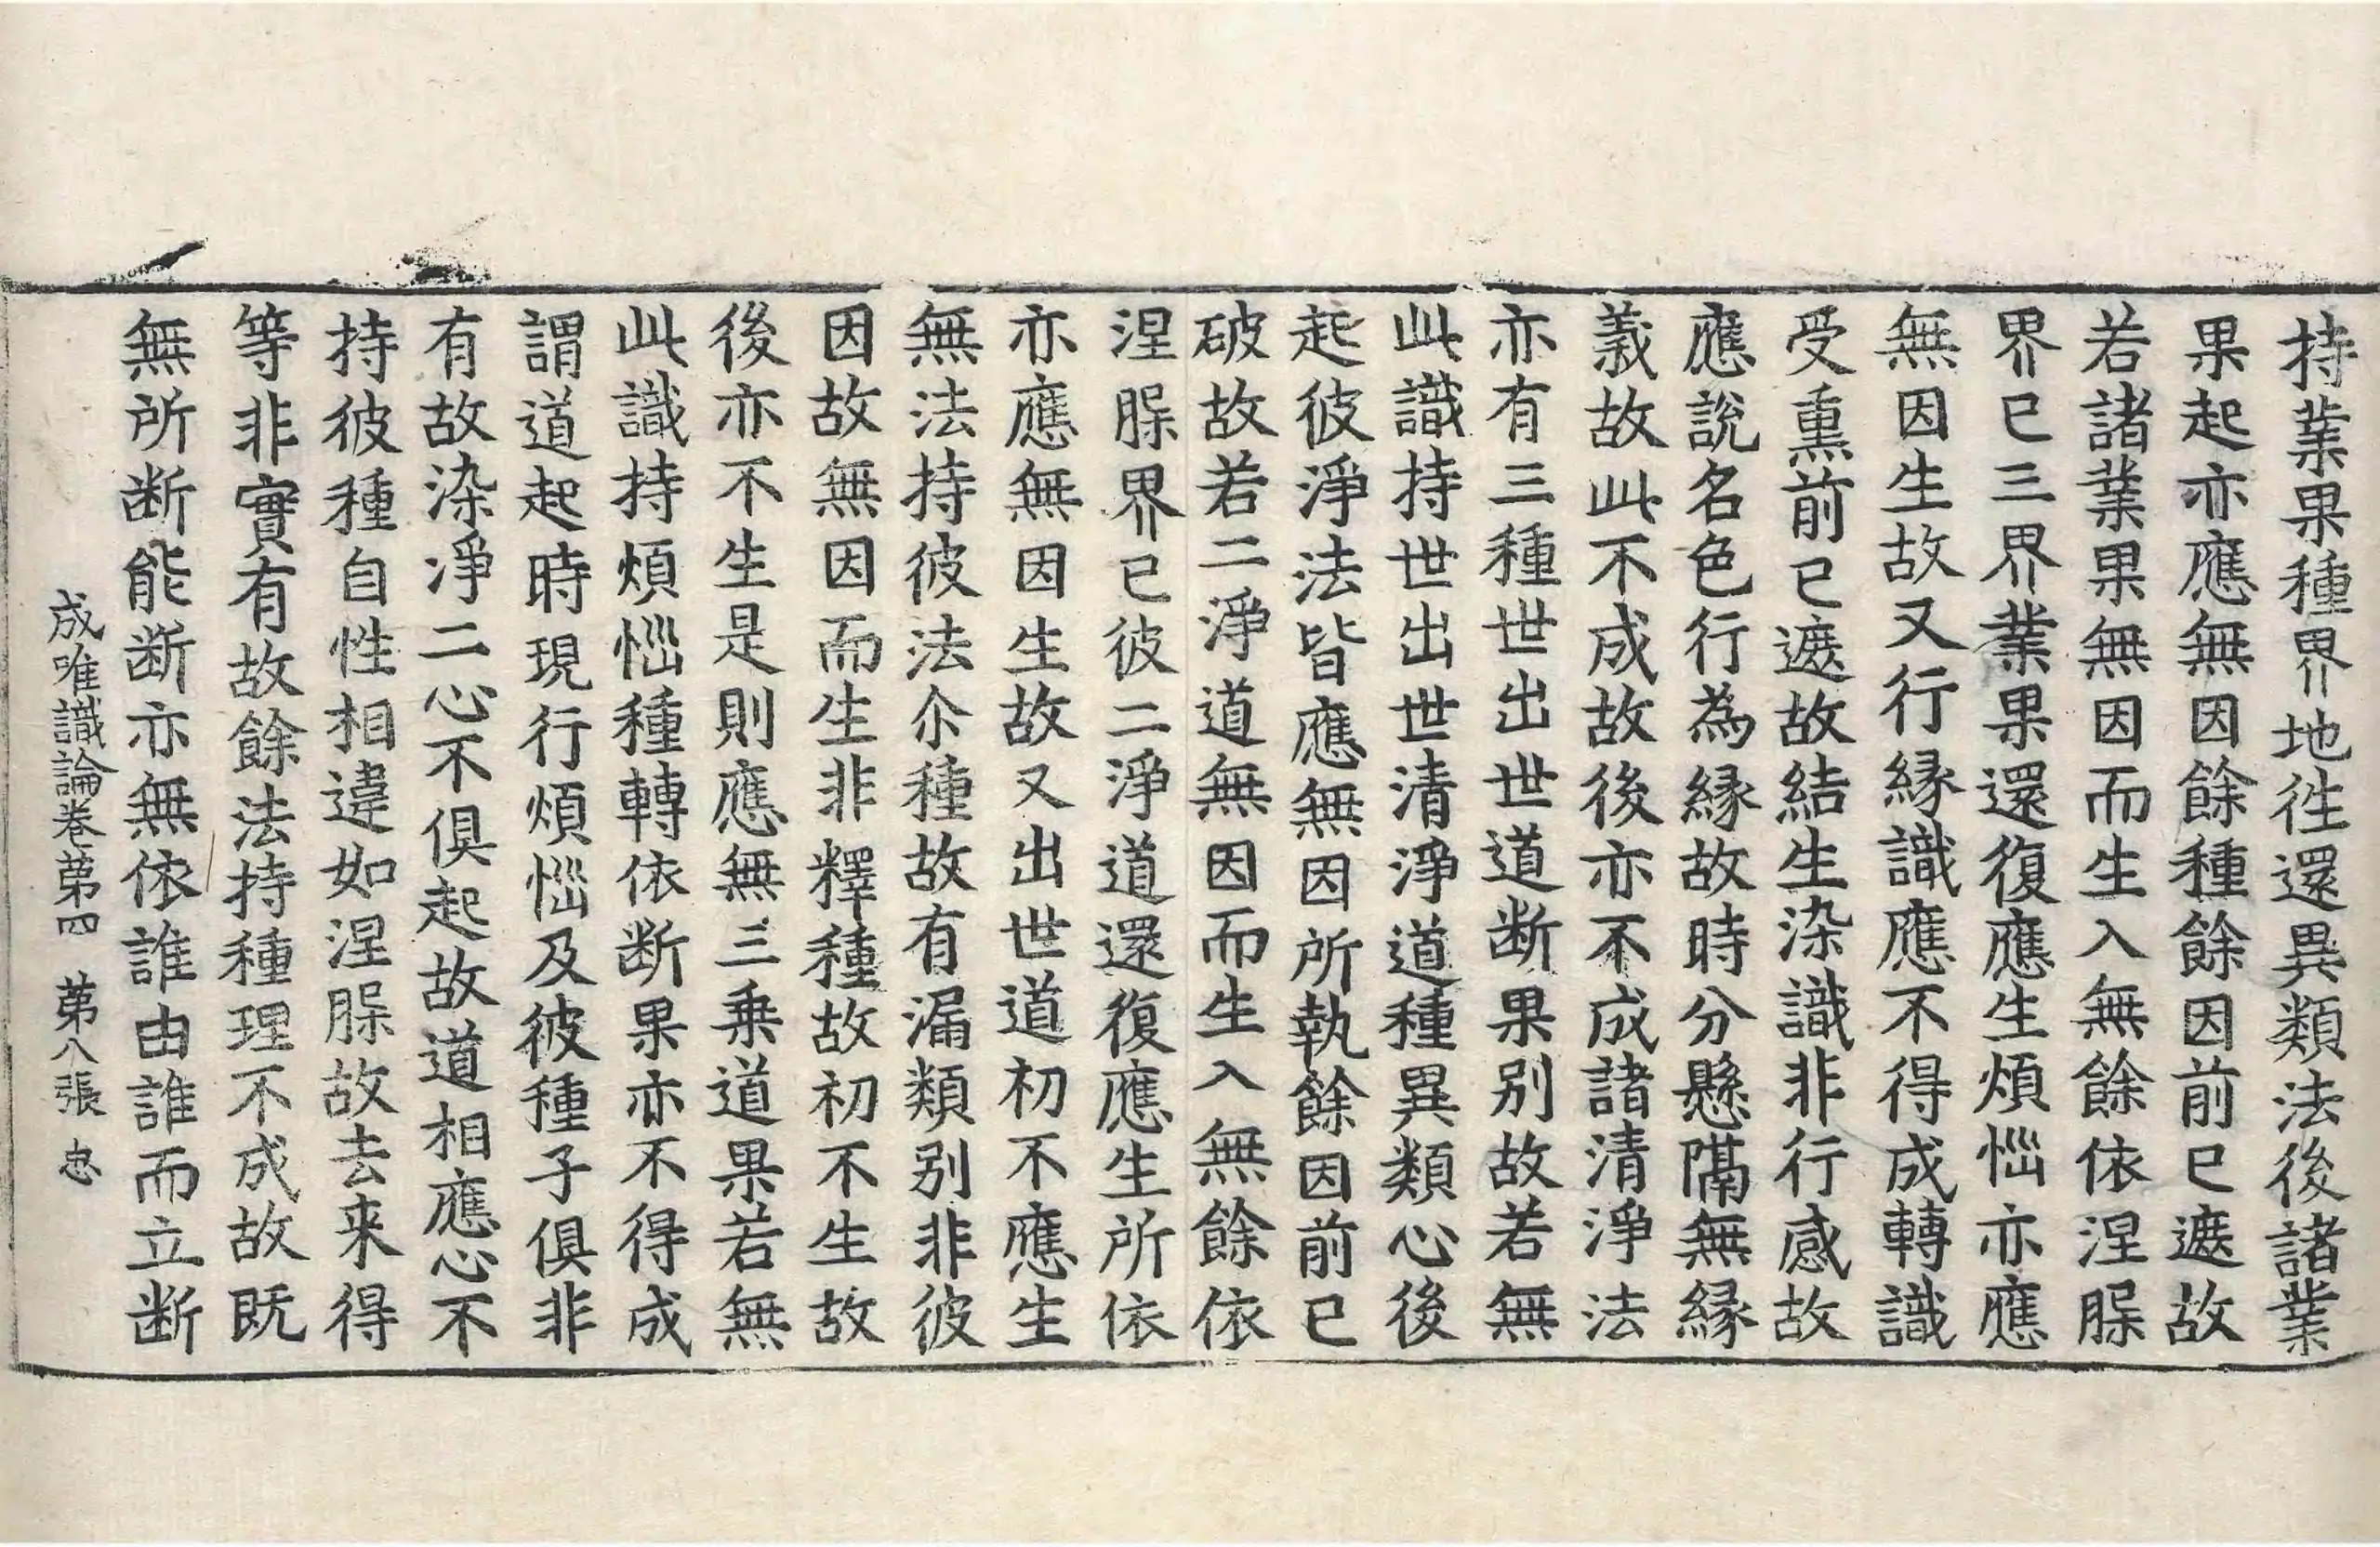 持業果種界地徃還異類法後諸業
果起亦應無因餘種餘因前已遮故
若諸業果無因而生入無餘依涅槃
界已三界業果還復應生煩惱亦應
無因生故又行縁識應不得成轉識
受熏前已遮故結生染識非行感故
應說名色行為縁故時分懸隔無縁
義故此不成故後亦不成諸清淨法
亦有三種世出世道断果別故若無
此識持世出世清淨道種異類心後
起彼淨法皆應無因所執餘因前已
破故若二淨道無因而生入無餘依
涅槃界已彼二淨道還復應生所依
亦應無因生故又出世道初不應生
無法持彼法尒種故有漏類別非彼
因故無因而生非釋種故初不生故
後亦不生是則應無三乗道果若無
此識持煩惱種轉依断果亦不得成
謂道起時現行煩惱及彼種子俱非
有故染淨二心不俱起故道相應心不
持彼種自性相違如涅槃故去来得
等非實有故餘法持種理不成故既
無所断能断亦無依誰由誰而立断
成唯識論卷苐四　苐八張　忠